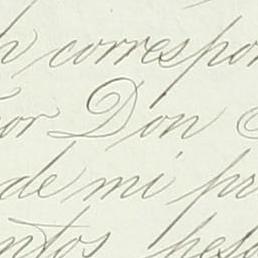 correspon
or Don
de mi pr
ntos pesa